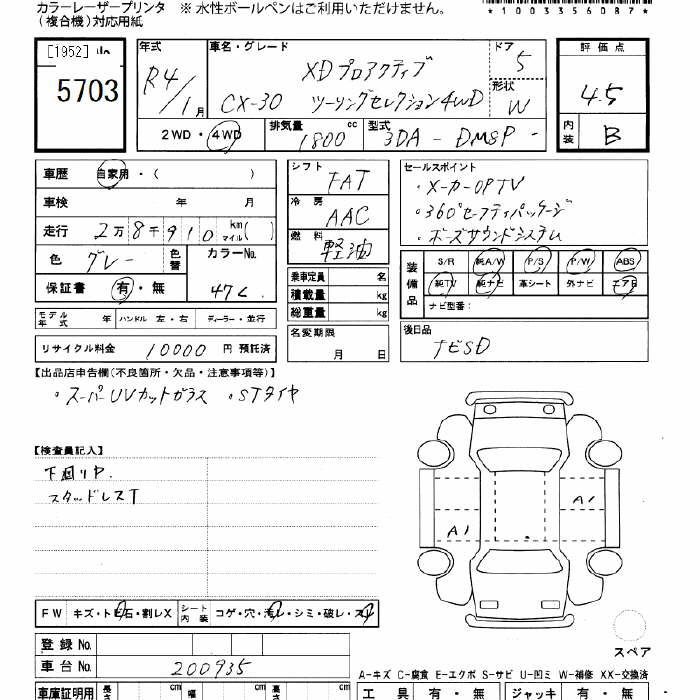 カラーレーザープリンタ ※ 水性ボールペンはご利用いただけません。
(複合機)対応用紙
*1003356087*
[1952]
5703
年式 R4/1月
車名・グレード XDプロアクティブ
CX-30 ツーリングセレクション4WD
ドア 5
形状 W
評価点 4.5
内装 B
2WD・4WD 排気量 1800 cc 型式 3DA-DM8P-
車歴 自家用・( )
車検 年 月
走行 2万8千910 km マイル( )
色 グレー 色替 カラーNo. 47C
保証書 有・無
モデル年式 年 ハンドル 左・右 ディーラー・並行
リサイクル料金 10000 円 預託済
シフト FAT
冷房 AAC
燃料 軽油
乗車定員 名
積載量 kg
総重量 kg
名変期限 月 日
セールスポイント
・メーカーOPTV
・360°セーフティパッケージ
・ボーズサウンドシステム
装備品 S/R 純A/W P/S P/W ABS
純TV 純ナビ 革シート 外ナビ エアB
ナビ型番:
後日品
ナビSD
【出品店申告欄(不良箇所・欠品・注意事項等)】
・スーパーUVカットガラス ・STタイヤ
【検査員記入】
下回りP.
スタッドレスT
A1
A1
FW キズ・トビ石・割レX シート内装 コゲ・穴・汚レ・シミ・破レ・スレ
登録 No.
車台 No. 200935
スペア
A-キズ C-腐食 E-エクボ S-サビ U-凹ミ W-補修 XX-交換済
車庫証明用 長さ cm 幅 cm 高さ cm
工具 有・無 ジャッキ 有・無